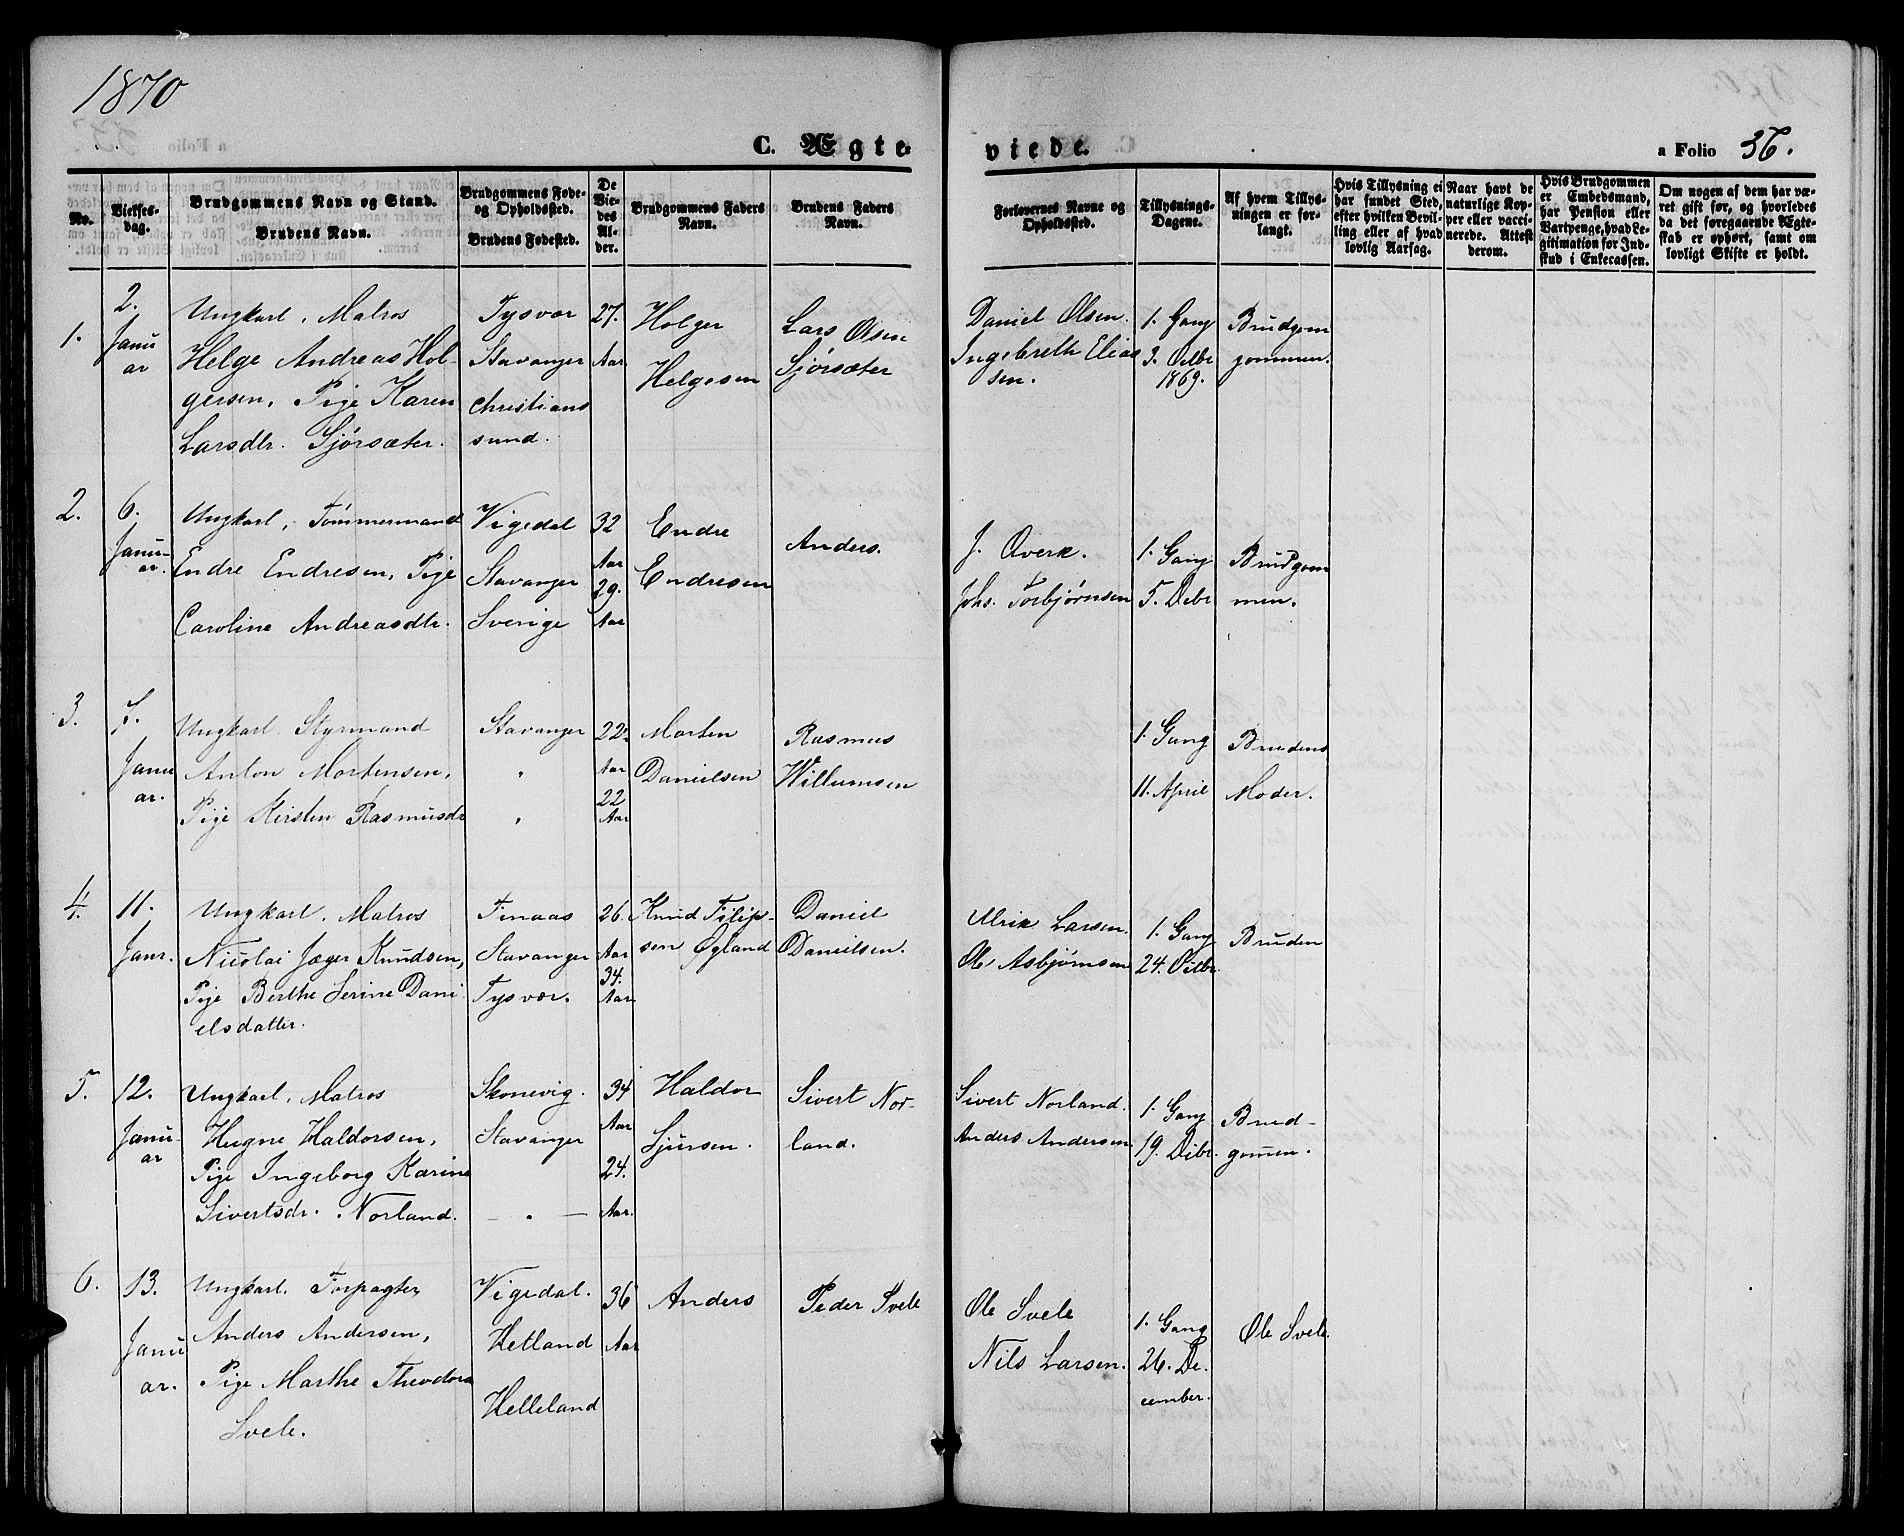 1870
C. Ægteviede.
a Folio 36.
No.
Vielses-
dag.
Brudgommens Navn og Stand.
Brudens Navn.
Brudgommens Føde-
og Opholdssted.
Brudens Fødested.
De
Vie-
des
Al-
der.
Brudgommens Faders
Navn.
Brudens Faders
Navn.
Forlovernes Navne og
Opholdssted.
Tillysnings-
Dagene.
Af hvem Tillys-
ningen er for-
langt.
Hvis Tillysning ei
har fundet Sted,
efter hvilken Bevil-
ling eller af hvad
lovlig Aarsag.
Naar havt de
naturlige Kop-
per eller vacci-
nerede. Attest
derom.
Hvis Brudgommen
er Embedsmand,
har Pension eller
Vartpenge, hvad Le-
gitimation for Ind-
skud i Enkecassen.
Om nogen af dem har væ-
ret gift før, og hvorledes
da det foregaaende Ægte-
skab er ophørt, samt om
lovligt Skifte er holdt.
1.
2.
Janu
ar
Ungkarl, Matros
Helge Andreas Hol-
gersen, Pige Karen
Larsdtr. Sjørsæter.
Tysvær
Stavanger
Christians
sund.
27.
Aar
Holger
Helgesen
Lars Olsen
Sjørsæter
Daniel Olsen.
Ingebreth Elias
sen.
1. Gang
3. Octbr
1869.
Brudgom
gommen.
2.
6.
Janu-
ar.
Ungkarl, Tømmermand
Endre Endresen, Pige
Caroline Andreasdtr.
Vigedal
Stavanger
Sverige
32
Aar
29.
Aar
Endre
Endresen
Anders.
J. Qverk.
Johs. Torbjørnsen
1. Gang
5. Debr
Brudgom
men.
3.
7.
Janu
ar.
Ungkarl Styrmand
Anton Mortensen,
Pige Kirsten Rasmusdr
Stavanger
"
"
22.
Aar
22
Aar
Morten
Danielsen
Rasmus
Willumsen
1. Gang
11. April
Brudens
Moder.
4.
11.
Janr.
Ungkarl, Matros
Nicolai Jæger Knudsen,
Pige Berthe Serine Dani
elsdatter.
Finaas
Stavanger
Tysvær.
26.
Aar
34.
Aar
Knud Filip-
sen Øgland
Daniel
Danielsen.
Ulrik Larsen.
Ole Asbjørnsen
1. Gang
24. Octbr.
Bruden
5.
12.
Janu-
ar
Ungkarl, Matros
Hugne Haldorsen,
Pige Ingeborg Karine
Sivertsdr. Norland.
Skonevig.
Stavanger
— " —
34
Aar
24.
Aar.
Haldor
Sjursen.
Sivert Nor-
land.
Sivert Norland.
Anders Andersen
1. Gang
19. Debr.
Brud-
gommen.
6.
13.
Janu
ar.
Ungkarl. Forpagter
Anders Andersen,
Pige Marthe Theodora
Svele.
Vigedal.
Hetland
Helleland
36
Aar
Anders
Peder Svele
Ole Svele
Nils Larsen.
1. Gang
26. De-
cember.
Ole Svele.